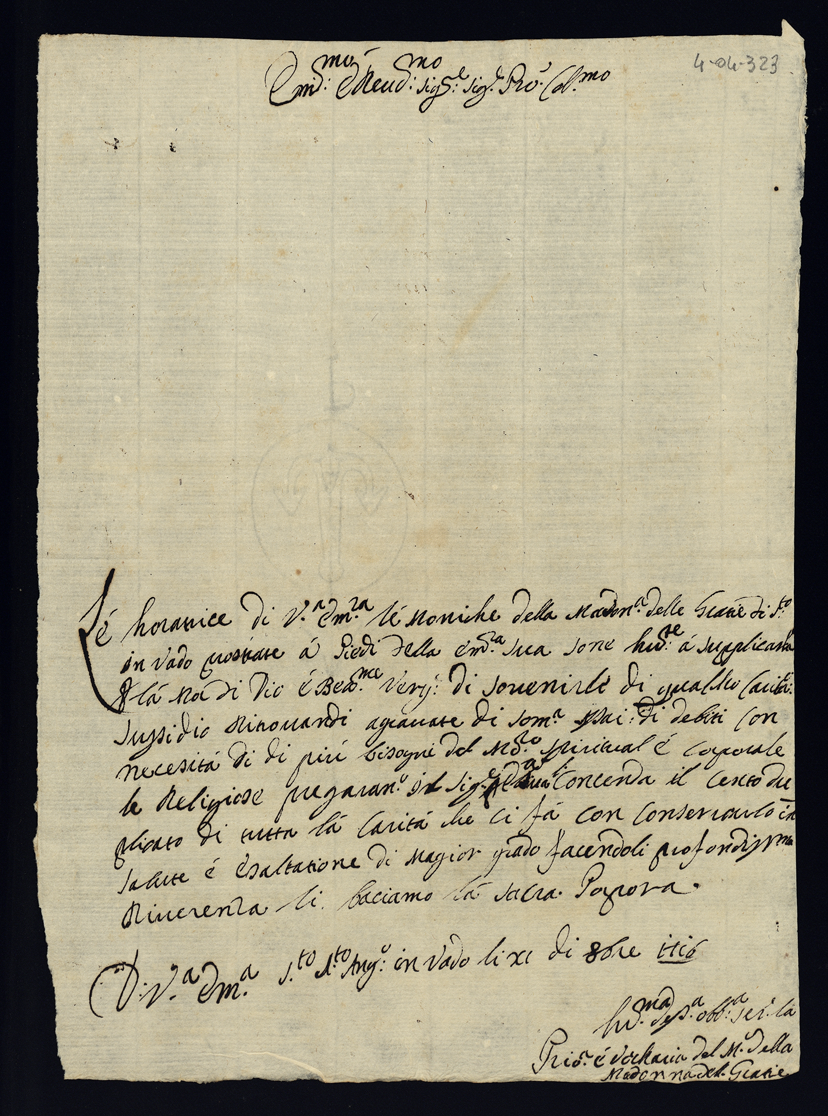 4-04-323
Em.mo é Reud.mo Sig.re Sig.r Pro.' Col.mo
Lé horatrice di V.a Em.za lé Moniche della Madon.a delle Gratie di S.to
in Vado prostrate á piedi della Em.za Sua sone á supplicarla
la di Dio é Verg. di souenirlé di qualche Carita.
sussidio Ritrouandi agrauate di som.a di debiti Con
necesitá di di piú bisogni del Mo.ro spiritual é corporale
le Religiose pregaran.o il Sig.re Conceda il Cento du
plicato di tutta lá Caritá che ci fá con Conseruarlo in
salute é esaltatione di Magior grado facendoli profondissma
Riuerenza li baciamo lá sacra Porpora.
D. V.a Em.a S.to A.to Ang.o in Vado li xi di 8bre 1716
obb.a ser. la
Prio.a é Vichaira del M.o della
Madonna del. Gratie